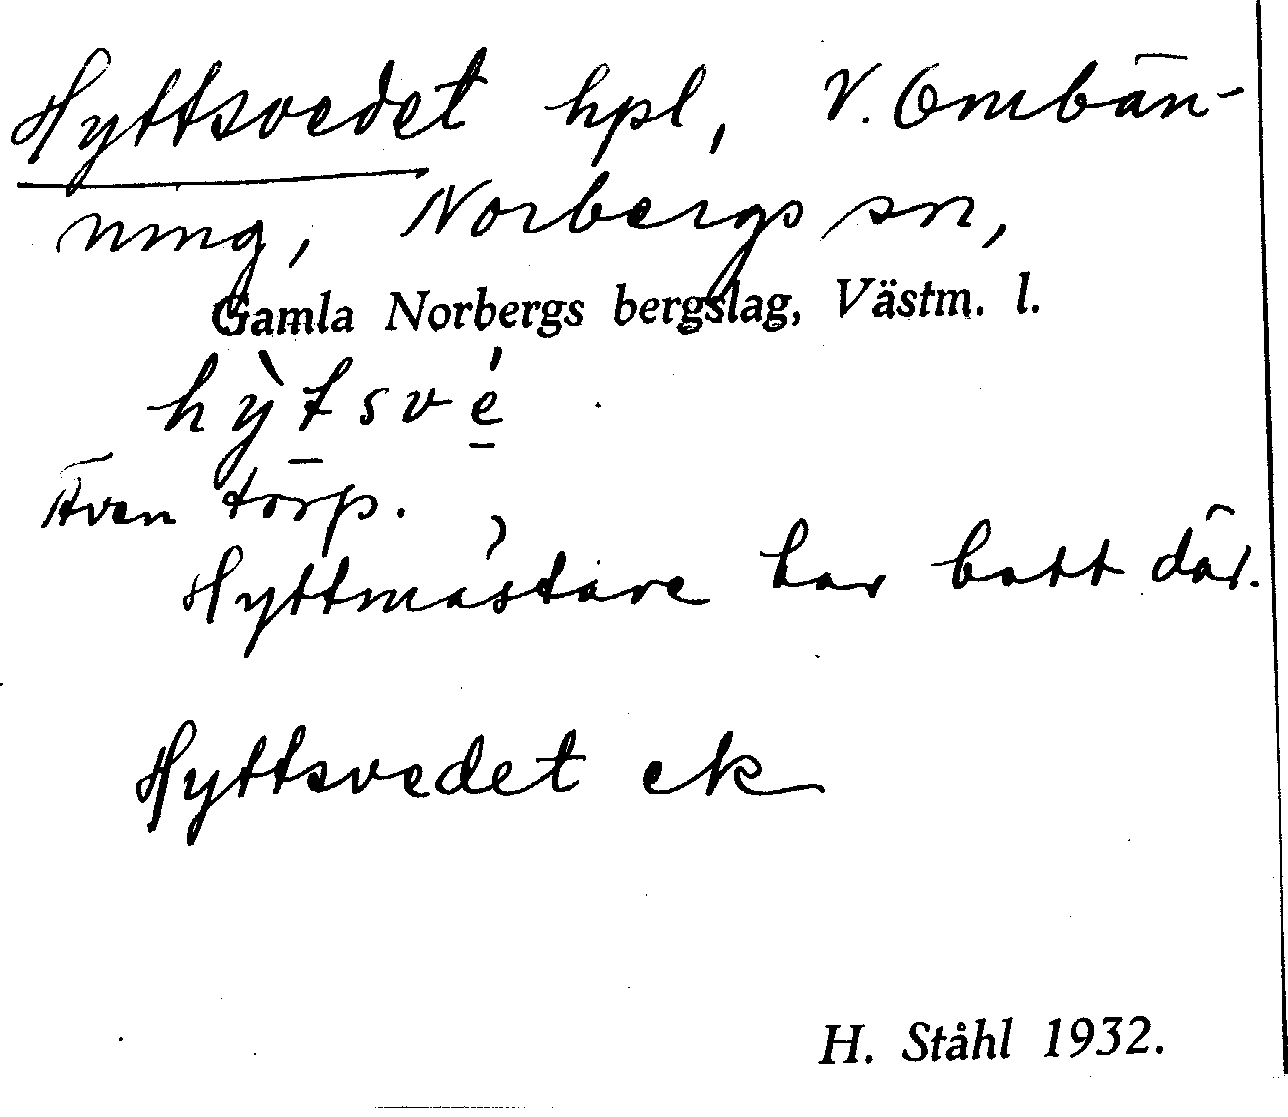 Hyttsvedet hpl, V. Ombän-
ning, Norbergs sn,
Gamla Norbergs bergslag, Västm. l.
hỳt̠své̠
Även torp.
Hyttmästare har bott där.
Hyttsvedet ek
H. Ståhl 1932.